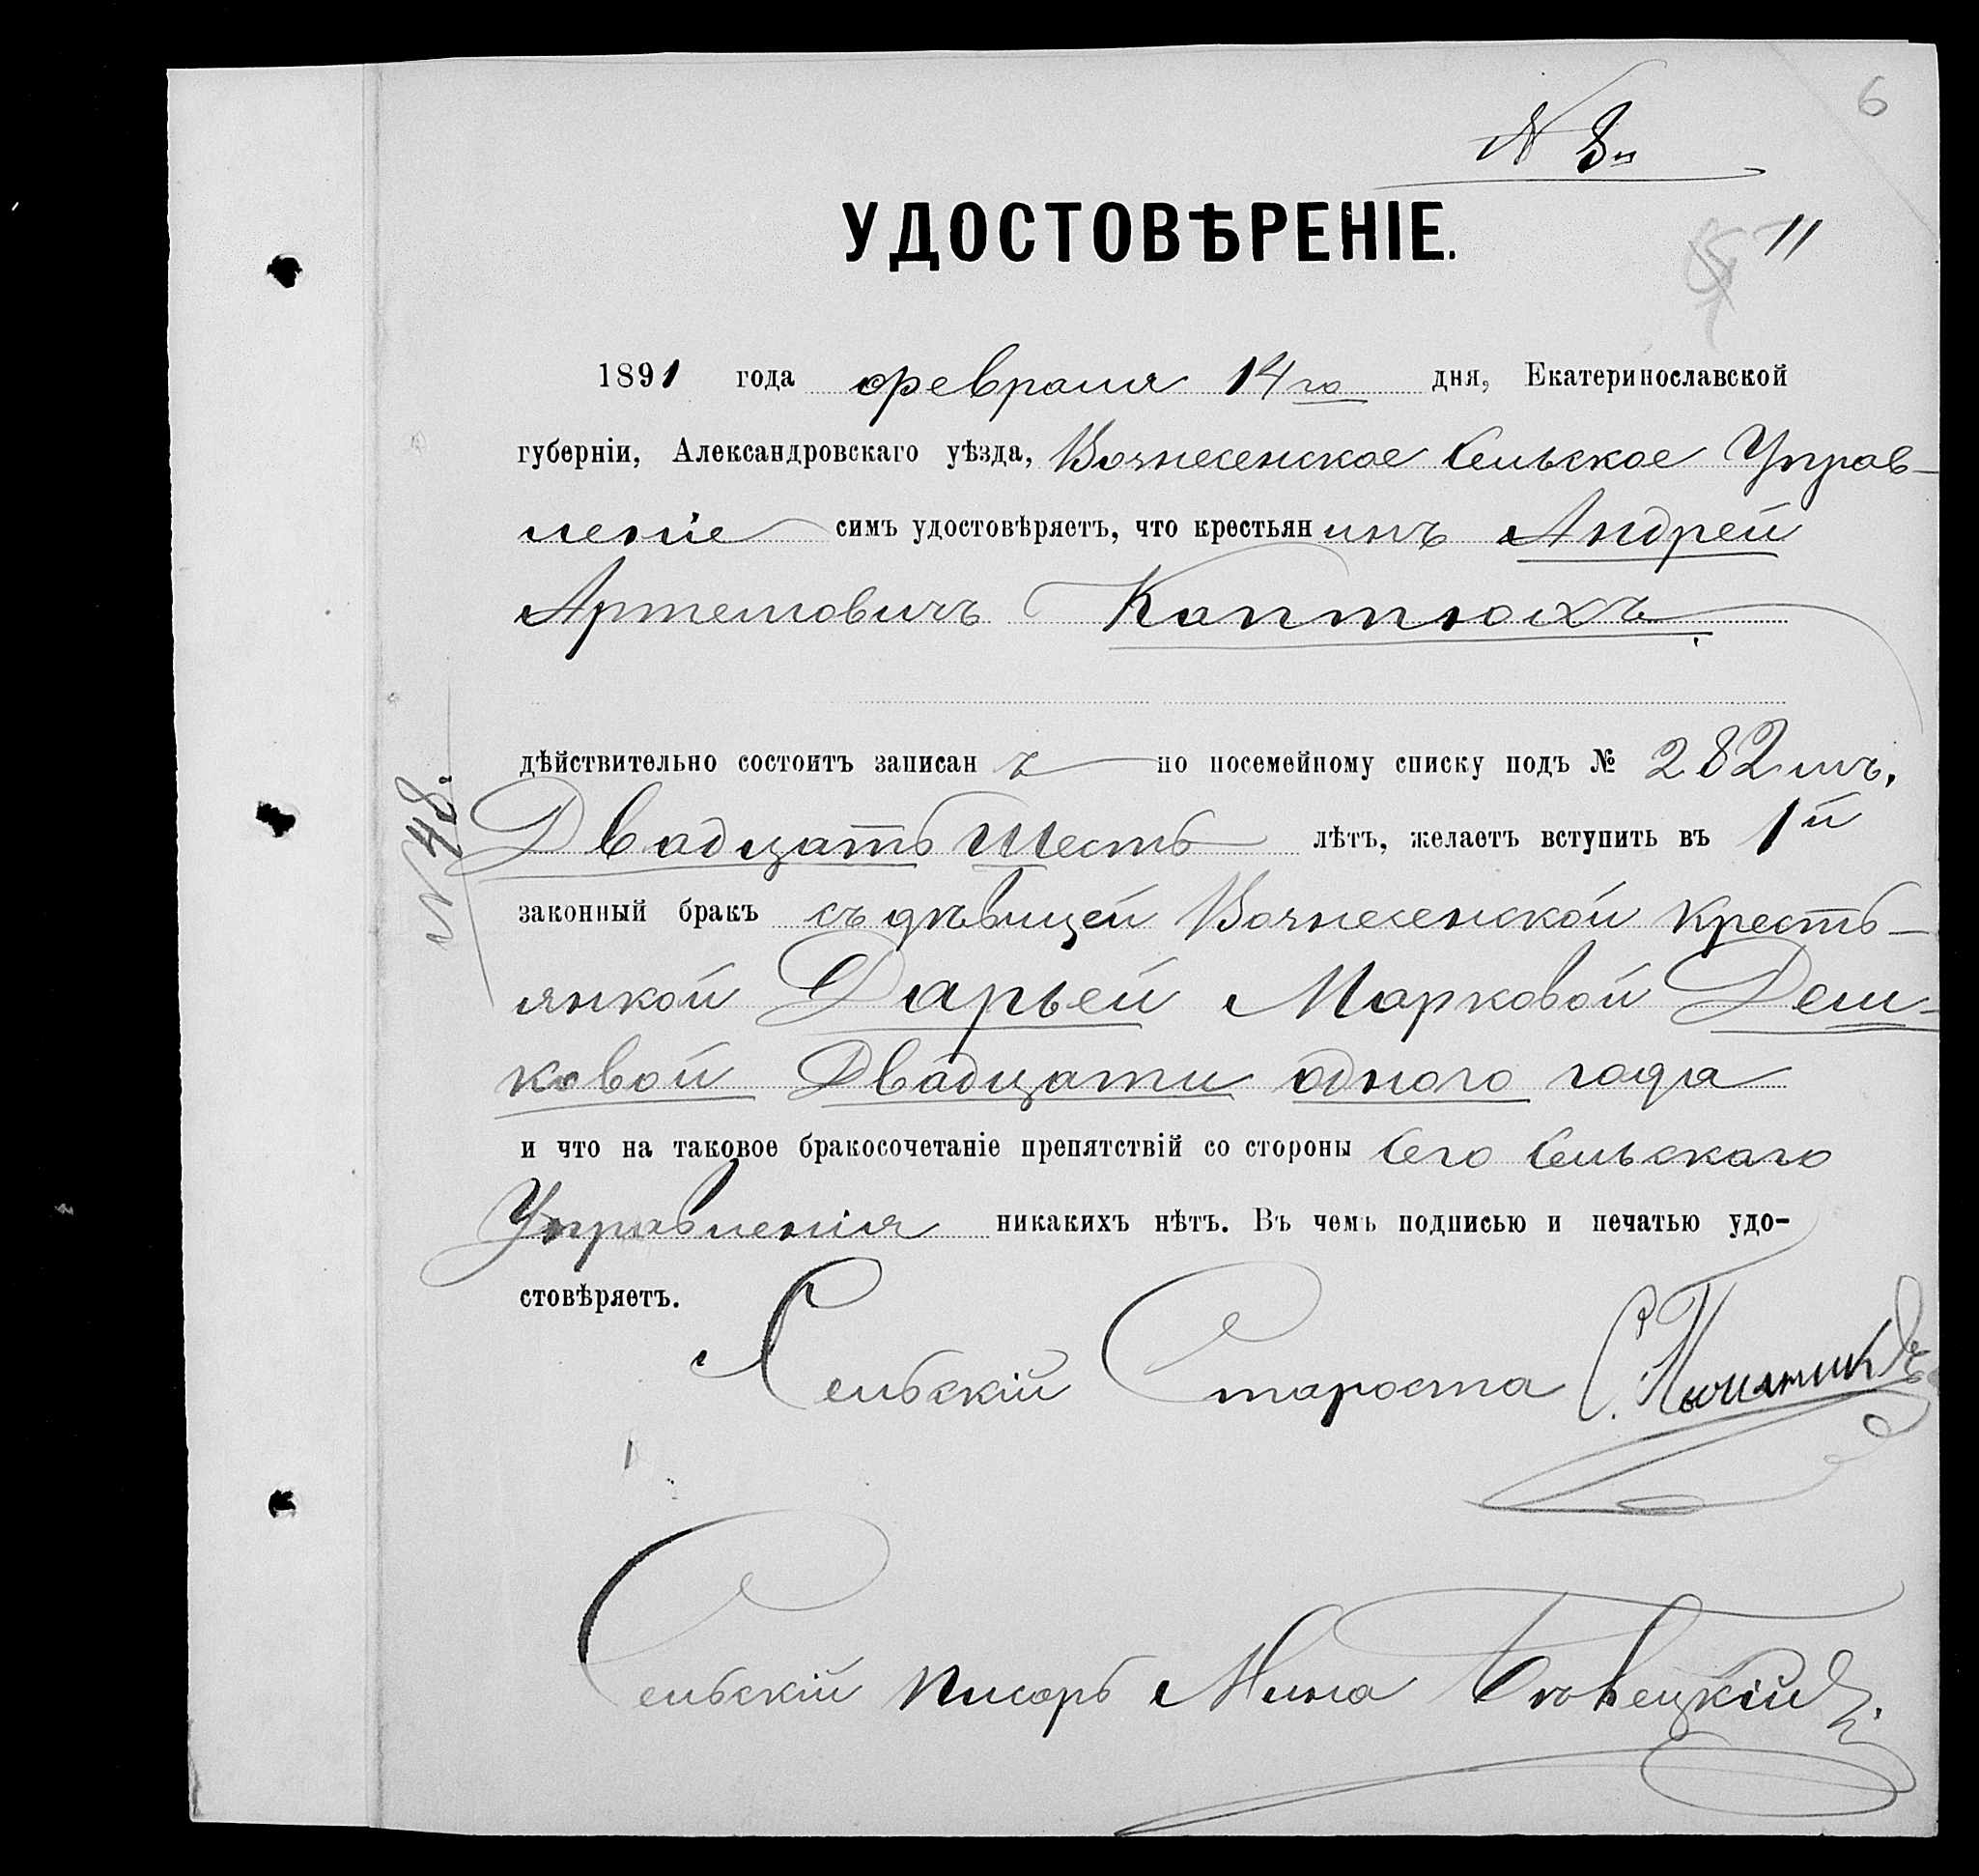 6
№ 8й
УДОСТОВѢРЕНІЕ.
11
1891 года февраля 14го дня, Екатеринославской
губерніи, Александровскаго уѣзда, Вознесенское Сельское Управ-
леніе симъ удостовѣряетъ, что крестьянинъ Андрей
Артемовичъ Коптюхъ
дѣйствительно состоитъ записанъ по посемейному списку подъ № 282мъ,
№ 48.
Двадцать Шесть лѣтъ, желаетъ вступить въ 1й
законный бракъ съ дѣвицей Вознесенской Кресть-
янкой Дарьей Марковой Деш-
ковой Двадцати одного года
и что на таковое бракосочетаніе препятствій со стороны Сего Сельскаго
Управленія никакихъ нѣтъ. Въ чемъ подписью и печатью удо-
стовѣряетъ.
Сельскій Староста С.
Сельскій Писарь Мина